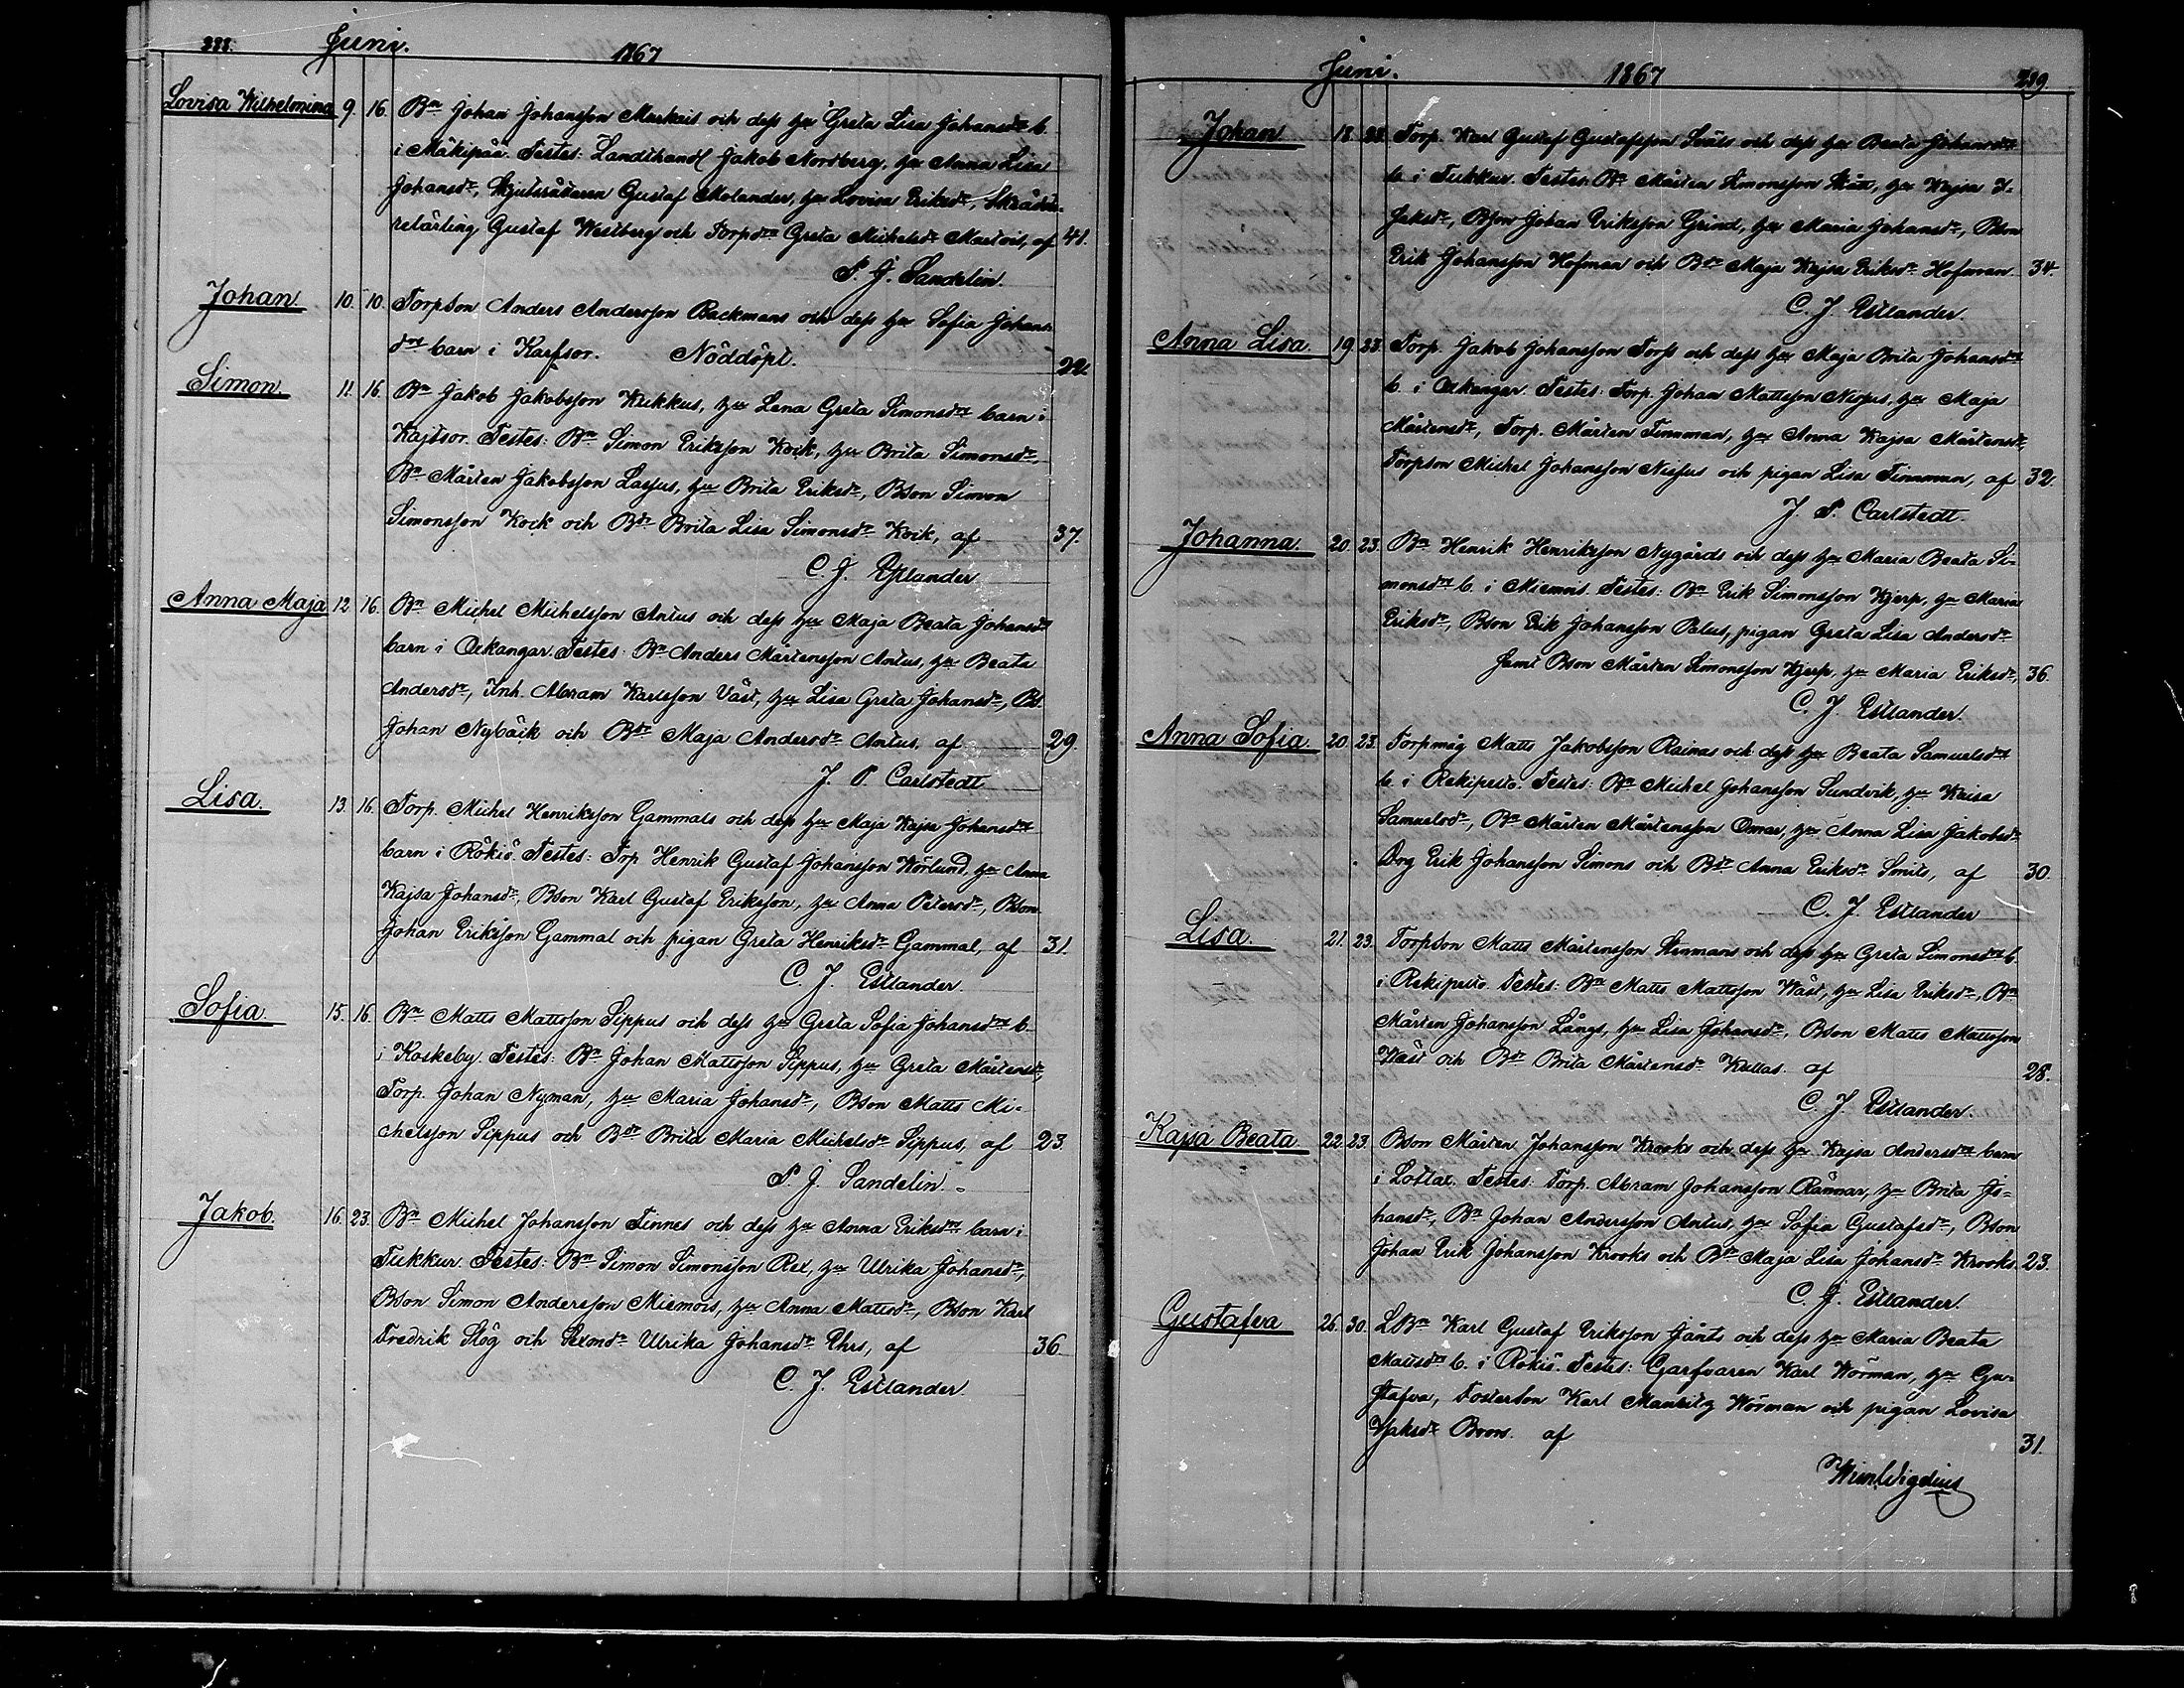 388. Juni. 1867
Lovisa Wilhelmina 9. 16. Bn Johan Johansson Markais och dess hu Greta Lisa Johansdrs b.
i Mäkipää. Testes: Landthandl Jakob Nordberg, hu Anna Lisa
Johansdr, Skjutsrådaren Gustaf Molander, hu Lovisa Eriksdr, Skräddi-
relärling Gustaf Westberg och Torpdrn Greta Michelsdr Martois, af 41.
P. J. Sandelin.
Johan. 10. 10. Torpson Anders Andersson Backmans och dess hu Sofia Johans-
drs barn i Karfsor. Nöddöpt. 22.
Simon. 11. 16. Bn Jakob Jakobsson Kukkus, hu Lena Greta Simonsdrs barn i
Kajtsor. Testes: Bn Simon Eriksson Koik, hu Brita Simonsdr,
Bn Mårten Jakobsson Lassus, hu Brita Eriksdr, Bson Simon
Simonsson Koik och Bdr Brita Lisa Simonsdr Koik, af 37.
C. J. Estlander
Anna Maja 12. 16. Bn Michel Michelsson Antus och dess hu Maja Beata Johansdrs
barn i Oxkangar. Testes: Bn Anders Mårtensson Antus, hu Beata
Andersdr, Inh. Abram Karlsson Väst, hu Lisa Greta Johansdr, Bs.
Johan Nybäck och Bdr Maja Andersdr Antus, af 29.
J. P. Carlstedt
Lisa. 13. 16. Torp. Michel Henriksson Gammals och dess hu Maja Kajsa Johansdrs
barn i Rökiö. Testes: Torp Henrik Gustaf Johansson Norlund, hu Anna
Kajsa Johansdr, Bson Karl Gustaf Eriksson, hu Anna Petersdr, Bson
Johan Eriksson Gammal och pigan Greta Henriksdr Gammal, af 31.
C. J. Estlander.
Sofia. 15. 16. Bn Matts Mattsson Sippus och dess hu Greta Sofia Johansdrs b.
i Koskeby. Testes: Bn Johan Mattsson Sippus, hu Greta Mårtensdr,
Torp. Johan Nyman, hu Maria Johansdr, Bson Matts Mi-
chelsson Sippus och Bdr Brita Maria Michelsdr Sippus, af 23.
P. J. Sandelin.
Jakob. 16. 23. Bn Michel Johansson Finnes och dess hu Anna Eriksdrs barn i
Tukkur. Testes: Bn Simon Simonsson Rex, hu Ulrika Johansdr,
Bson Simon Andersson Miemois, hu Anna Mattsdr, Bson Karl
Fredrik Stög och Sexmdr Ulrika Johansdr Ehrs, af 36.
C. J. Estlander.
Juni. 1867 389.
Johan 18. 23. Torp. Karl Gustaf Gustafsson Lväls och dess hu Beata Johansdrs
b. i Tukkur. Testes: Bn Mårten Simonsson Skått, hu Kajsa I-
saksdr, Bson Johan Eriksson Grind, hu Maria Johansdr, Bson
Erik Johansson Hofman och Bdr Maja Kajsa Eriksdr Hofman 34.
C. J. Estlander.
Anna Lisa. 19. 23. Torp. Jakob Johansson Torps och dess hu Maja Brita Johansdrs
b. i Oxkangar. Testes: Torp. Johan Mattsson Nissus, hu Maja
Mårtensdr, Torp. Mårten Finnman, hu Anna Kajsa Mårtensdr,
Torpson Michel Johansson Nissus och pigan Lisa Finnman, af 32.
J. P. Carlstedt.
Johanna. 20. 23. Bn Henrik Henriksson Nygårds och dess hu Maria Beata Si-
monsdrs b. i Miemois. Testes: Bn Erik Simonsson Kjerp, hu Maria
Eriksdr, Bson Erik Johansson Palus, pigan Greta Lisa Andersdr
samt Bson Mårten Simonsson Kjerp, hu Maria Eriksdr, 36.
C. J. Estlander.
Anna Sofia 20. 23. Torpmåg Matts Jakobsson Rainas och dess hu Beata Samuelsdrs
b. i Rekipelto. Testes: Bn Michel Johansson Sundvik, hu Kaisa
Samuelsdr, Bn Mårten Mårtensson Omar, hu Anna Lisa Jakobsdr
Drg Erik Johansson Simons och Bdr Anna Eriksdr Smits, af 30.
C. J. Estlander
Lisa. 21. 23. Torpson Matts Mårtensson Stenmans och dess hu Greta Simonsdrs b.
i Rekipelto. Testes: Bn Matts Mattsson Wäst, hu Lisa Eriksdr, Bn
Mårten Johansson Långs, hu Lisa Johansdr, Bson Matts Mattsson
Wäst och Bdr Brita Mårtensdr Kallas. af 28.
C. J. Estlander.
Kajsa Beata 22. 23. Bson Mårten Johansson Krooks och dess hu Kajsa Andersdrs barn
i Lotlax. Testes: Torp. Abram Johansson Rännar, hu Brita Jo-
hansdr, Bn Johan Andersson Antus, hu Sofia Gustafsdr, Bson
Johan Erik Johansson Krooks och Bdr Maja Lisa Johansdr Krooks. 23.
C. J. Estlander.
Gustafva 26. 30. LBn Karl Gustaf Eriksson Jänts och dess hu Maria Beata
Mattsdrs b. i Rökiö. Testes: Garfvaren Karl Wörman, hu Gu-
stafva, Fosterson Karl Mauritz Wörman och pigan Lovisa
Isaksdr Boors. af 31.